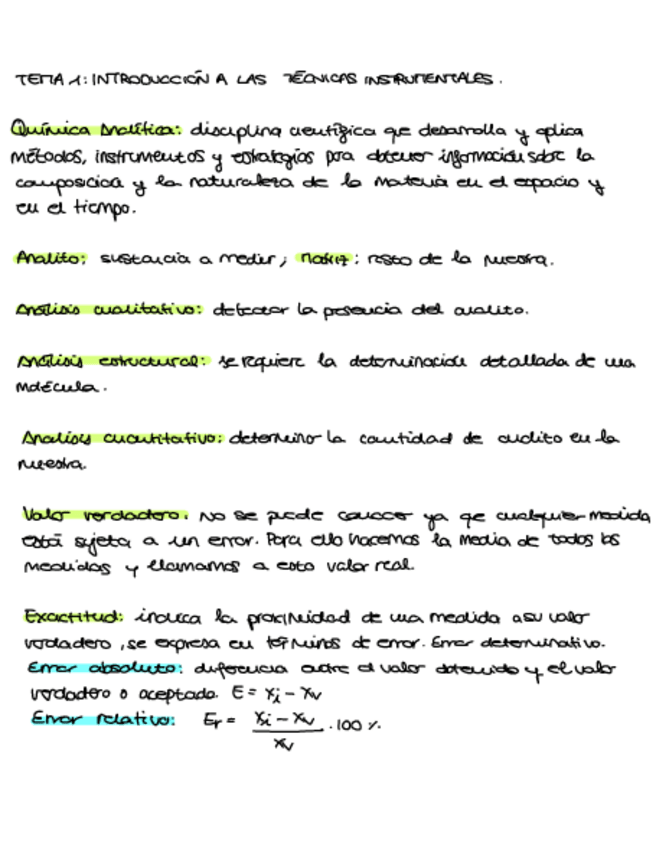 TEMA 1: INTRODUCCIÓN A LAS TÉCNICAS INSTRUMENTALES.
Química Analítica: disciplina científica qe desarrolla y aplica
métodos, instrumentos y estrategias para obtener información sobre la
composición y la naturaleza de la materia en el espacio y
en el tiempo.
Analito: sustancia a medir; Matriz: resto de la muestra.
Análisis cualitativo: detectar la presencia del analito.
Análisis estructural: se requiere la determinación detallada de una
molécula.
Analisis cuantitativo: determinar la cantidad de analito en la
muestra.
Valor verdadero: No se puede conocer ya qe cualquier medida
está sujeta a un error. Para ello hacemos la media de todas las
medidas y llamamos a esto valor real.
Exactitud: indica la proximidad de una medida a su valor
verdadero, se expresa en términos de error. Error determinativo.
Error absoluto: diferencia entre el valor obtenido y el valor
verdadero o aceptado. E = xi - xv
Error relativo: Er = xi - xv / xv · 100 %